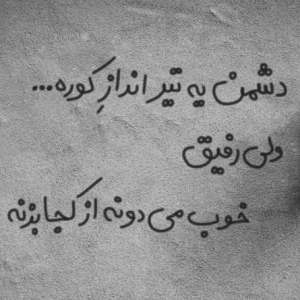 دشمن یه تیر اندازِ کوره...
ولی رفیق
خوب می دونه از کجا بزنه